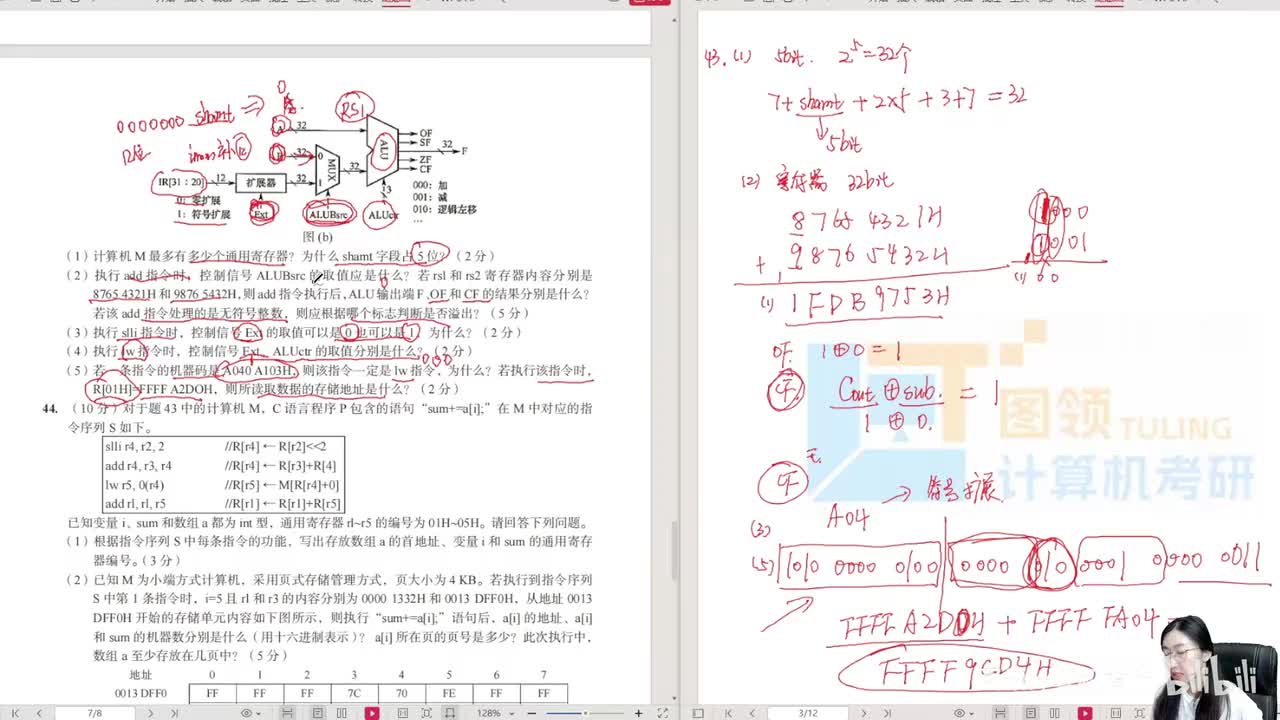 0
0000000 shamt ⇒
RS1
32
OF
SF
12位
32
32
ALU
32
F
ZF
CF
IR[31 : 20]
12
扩展器
32
MUX
0
1
3
000：加
001：减
010：逻辑左移
…
0：零扩展
1：符号扩展
Ext
ALUBsrc
ALUctr
图 (b)
（1）计算机 M 最多有多少个通用寄存器？为什么 shamt 字段占 5 位？（2 分）
（2）执行 add 指令时，控制信号 ALUBsrc 的取值应是什么？若 rs1 和 rs2 寄存器内容分别是
8765 4321H 和 9876 5432H，则 add 指令执行后，ALU 输出端 F、OF 和 CF 的结果分别是什么？
若该 add 指令处理的是无符号整数，则应根据哪个标志判断是否溢出？（5 分）
（3）执行 slli 指令时，控制信号 Ext 的取值可以是 0 也可以是 1，为什么？（2 分）
（4）执行 lw 指令时，控制信号 Ext、ALUctr 的取值分别是什么？（2分）
（5）若一条指令的机器码是 A040 A103H，则该指令一定是 lw 指令，为什么？若执行该指令时，
R[01H]=FFFF A2DOH，则所读取数据的存储地址是什么？（2 分）
44.（10 分）对于题 43 中的计算机 M，C 语言程序 P 包含的语句“sum+=a[i];”在 M 中对应的指
令序列 S 如下。
slli r4, r2, 2 //R[r4] ← R[r2]<<2
add r4, r3, r4 //R[r4] ← R[r3]+R[4]
lw r5, 0(r4) //R[r5] ← M[R[r4]+0]
add r1, r1, r5 //R[r1] ← R[r1]+R[r5]
已知变量 i、sum 和数组 a 都为 int 型，通用寄存器 r1~r5 的编号为 01H~05H。请回答下列问题。
（1）根据指令序列 S 中每条指令的功能，写出存放数组 a 的首地址、变量 i 和 sum 的通用寄存
器编号。（3 分）
（2）已知 M 为小端方式计算机，采用页式存储管理方式，页大小为 4 KB。若执行到指令序列
S 中第 1 条指令时，i=5 且 r1 和 r3 的内容分别为 0000 1332H 和 0013 DFF0H，从地址 0013
DFF0H 开始的存储单元内容如下图所示，则执行“sum+=a[i];”语句后，a[i] 的地址、a[i]
和 sum 的机器数分别是什么（用十六进制表示）？ a[i] 所在页的页号是多少？此次执行中，
数组 a 至少存放在几页中？（5 分）
地址 0 1 2 3 4 5 6 7
0013 DFF0 FF FF FF 7C 70 FE FF FF
7/8
128%
43. (1) 5bit. 2^5=32个
7+shamt+2×5+3+7=32
5bit
(2) 寄存器 32bit
8765 4321H
+ 9876 5432H
(1) 1FDB 9753H
1000
1001
(1) 00
OF. 1⊕0=1
CF. Cout⊕sub. = 1
1 ⊕ 0.
CF
→ 符号扩展
A04
(3)
(5) 1010 0000 0100 0000 1010 0001 0000 0011
FFFF A2D0H + FFFF FA04
FFFF 9CD4H
图领 TULING
计算机考研
3/12
bilibili